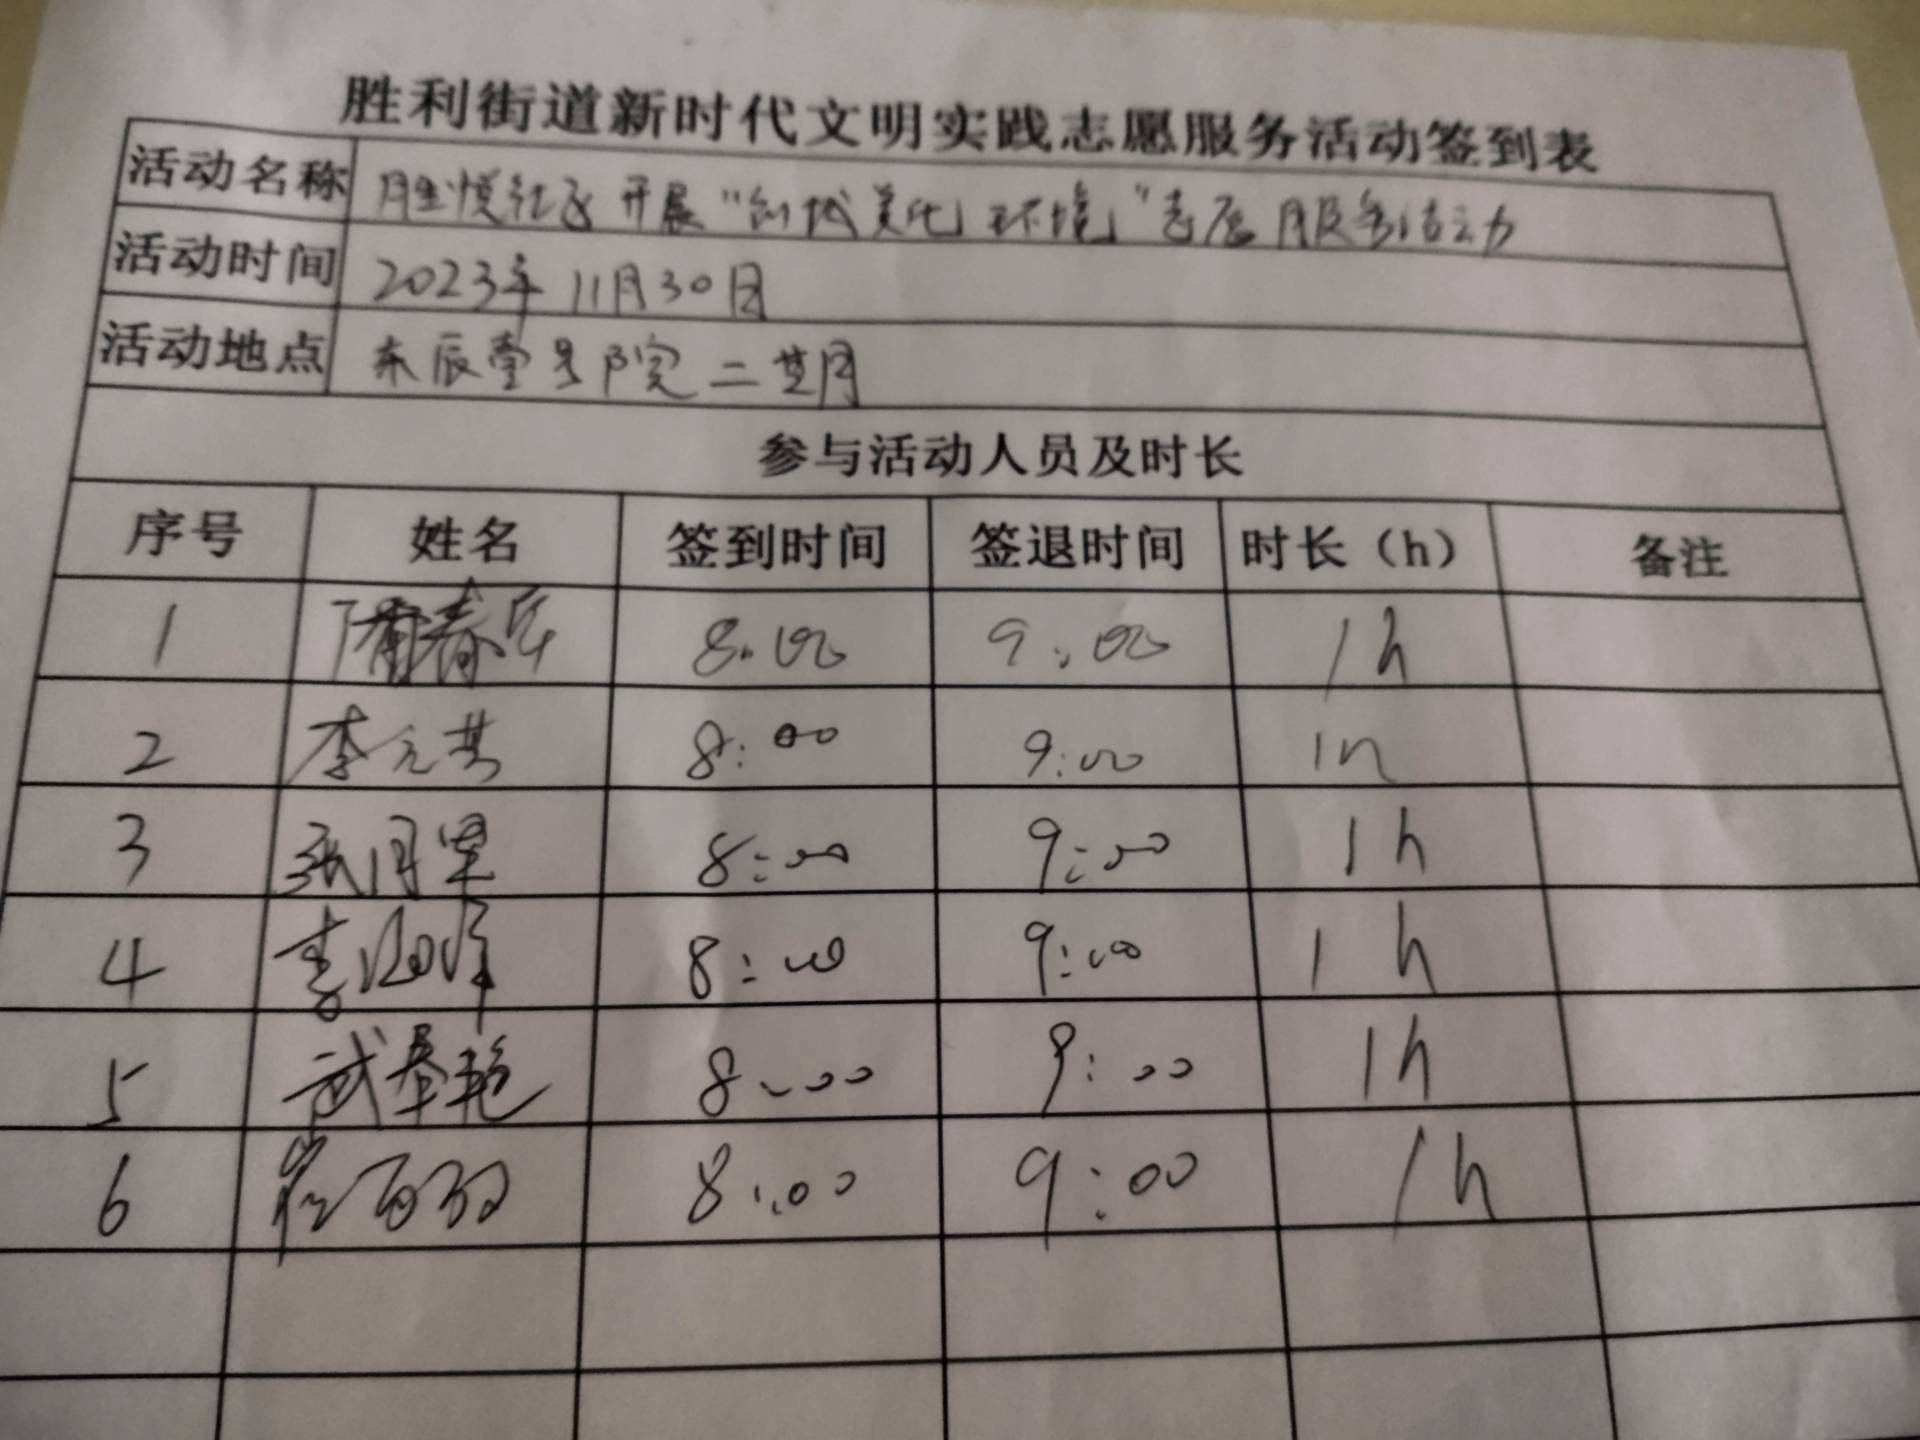 胜利街道新时代文明实践志愿服务活动签到表
活动名称 胜悦社区开展"创城美化环境"志愿服务活动
活动时间 2023年11月30日
活动地点 东辰壹号院二期
参与活动人员及时长
序号 姓名 签到时间 签退时间 时长（h） 备注
1 8:00 9:00 1h
2 李元芬 8:00 9:00 1h
3 张月 8:00 9:00 1h
4 李 8:00 9:00 1h
5 武春艳 8:00 9:00 1h
6 崔 8:00 9:00 1h